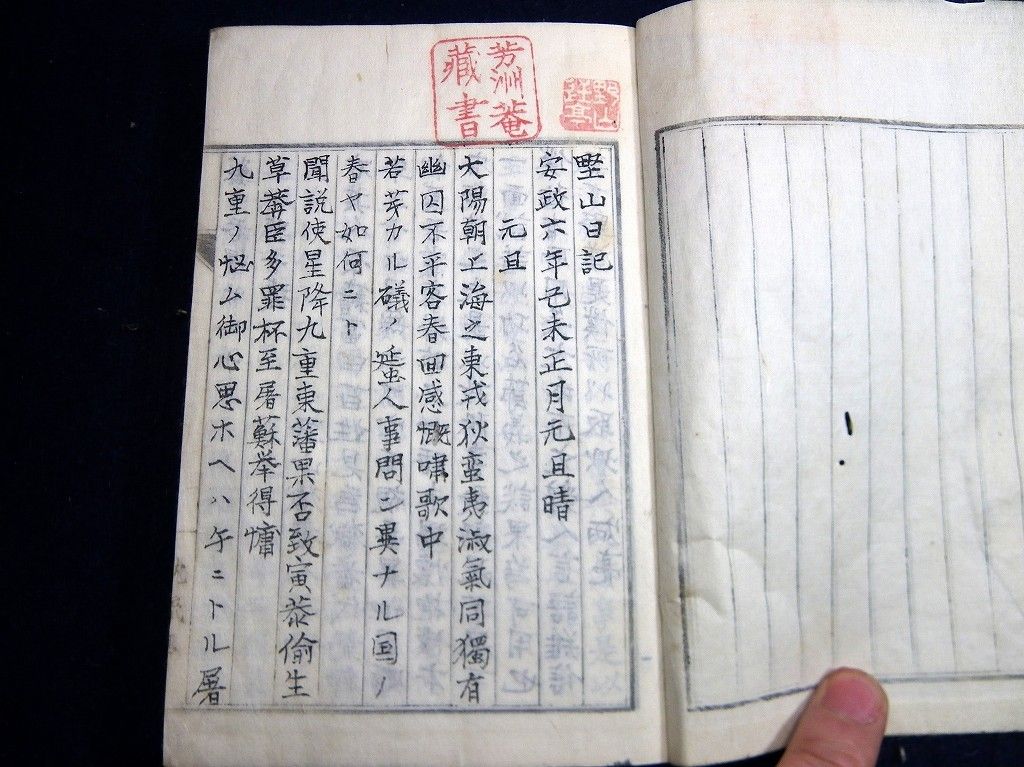 芳洲菴
藏書
野山日記
安政六年己未正月元旦晴
元旦
大陽朝上海之東戎狄蛮夷淑氣同獨有
幽囚不平客春回感慨嘯歌中
若芽カル礒ノ蜑人事問ン異ナル国ノ
春ヤ如何ニト
聞説使星降九重東藩果否致寅恭偸生
草莽臣多罪杯至屠蘇挙得慵
九重ノ悩ム御心思ホヘハ午ニトル屠